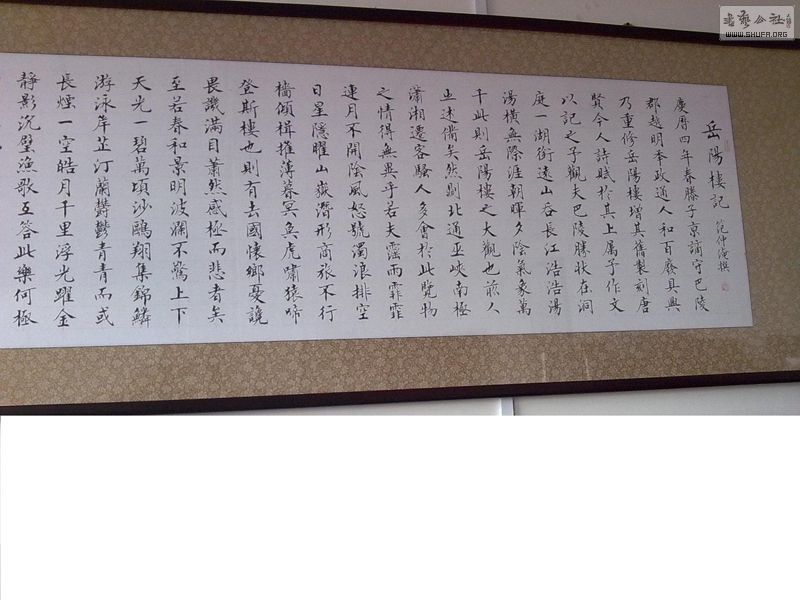 岳陽樓記
范仲淹撰
慶曆四年春滕子京謫守巴陵
郡越明年政通人和百廢具興
乃重修岳陽樓增其舊製刻唐
賢今人詩賦於其上属予作文
以記之予觀夫巴陵勝狀在洞
庭一湖銜遠山吞長江浩浩湯
湯橫無際涯朝暉夕陰氣象萬
千此則岳陽樓之大觀也前人
之述備矣然則北通巫峽南極
瀟湘遷客騷人多會於此覽物
之情得無異乎若夫霪雨霏霏
連月不開陰風怒號濁浪排空
日星隱曜山嶽潛形商旅不行
檣傾楫摧薄暮冥冥虎嘯猿啼
登斯樓也則有去國懷鄉憂讒
畏譏滿目蕭然感極而悲者矣
至若春和景明波瀾不驚上下
天光一碧萬頃沙鷗翔集錦鱗
游泳岸芷汀蘭鬱鬱青青而或
長煙一空皓月千里浮光躍金
靜影沉璧漁歌互答此樂何極
书艺公社
WWW.SHUFA.ORG